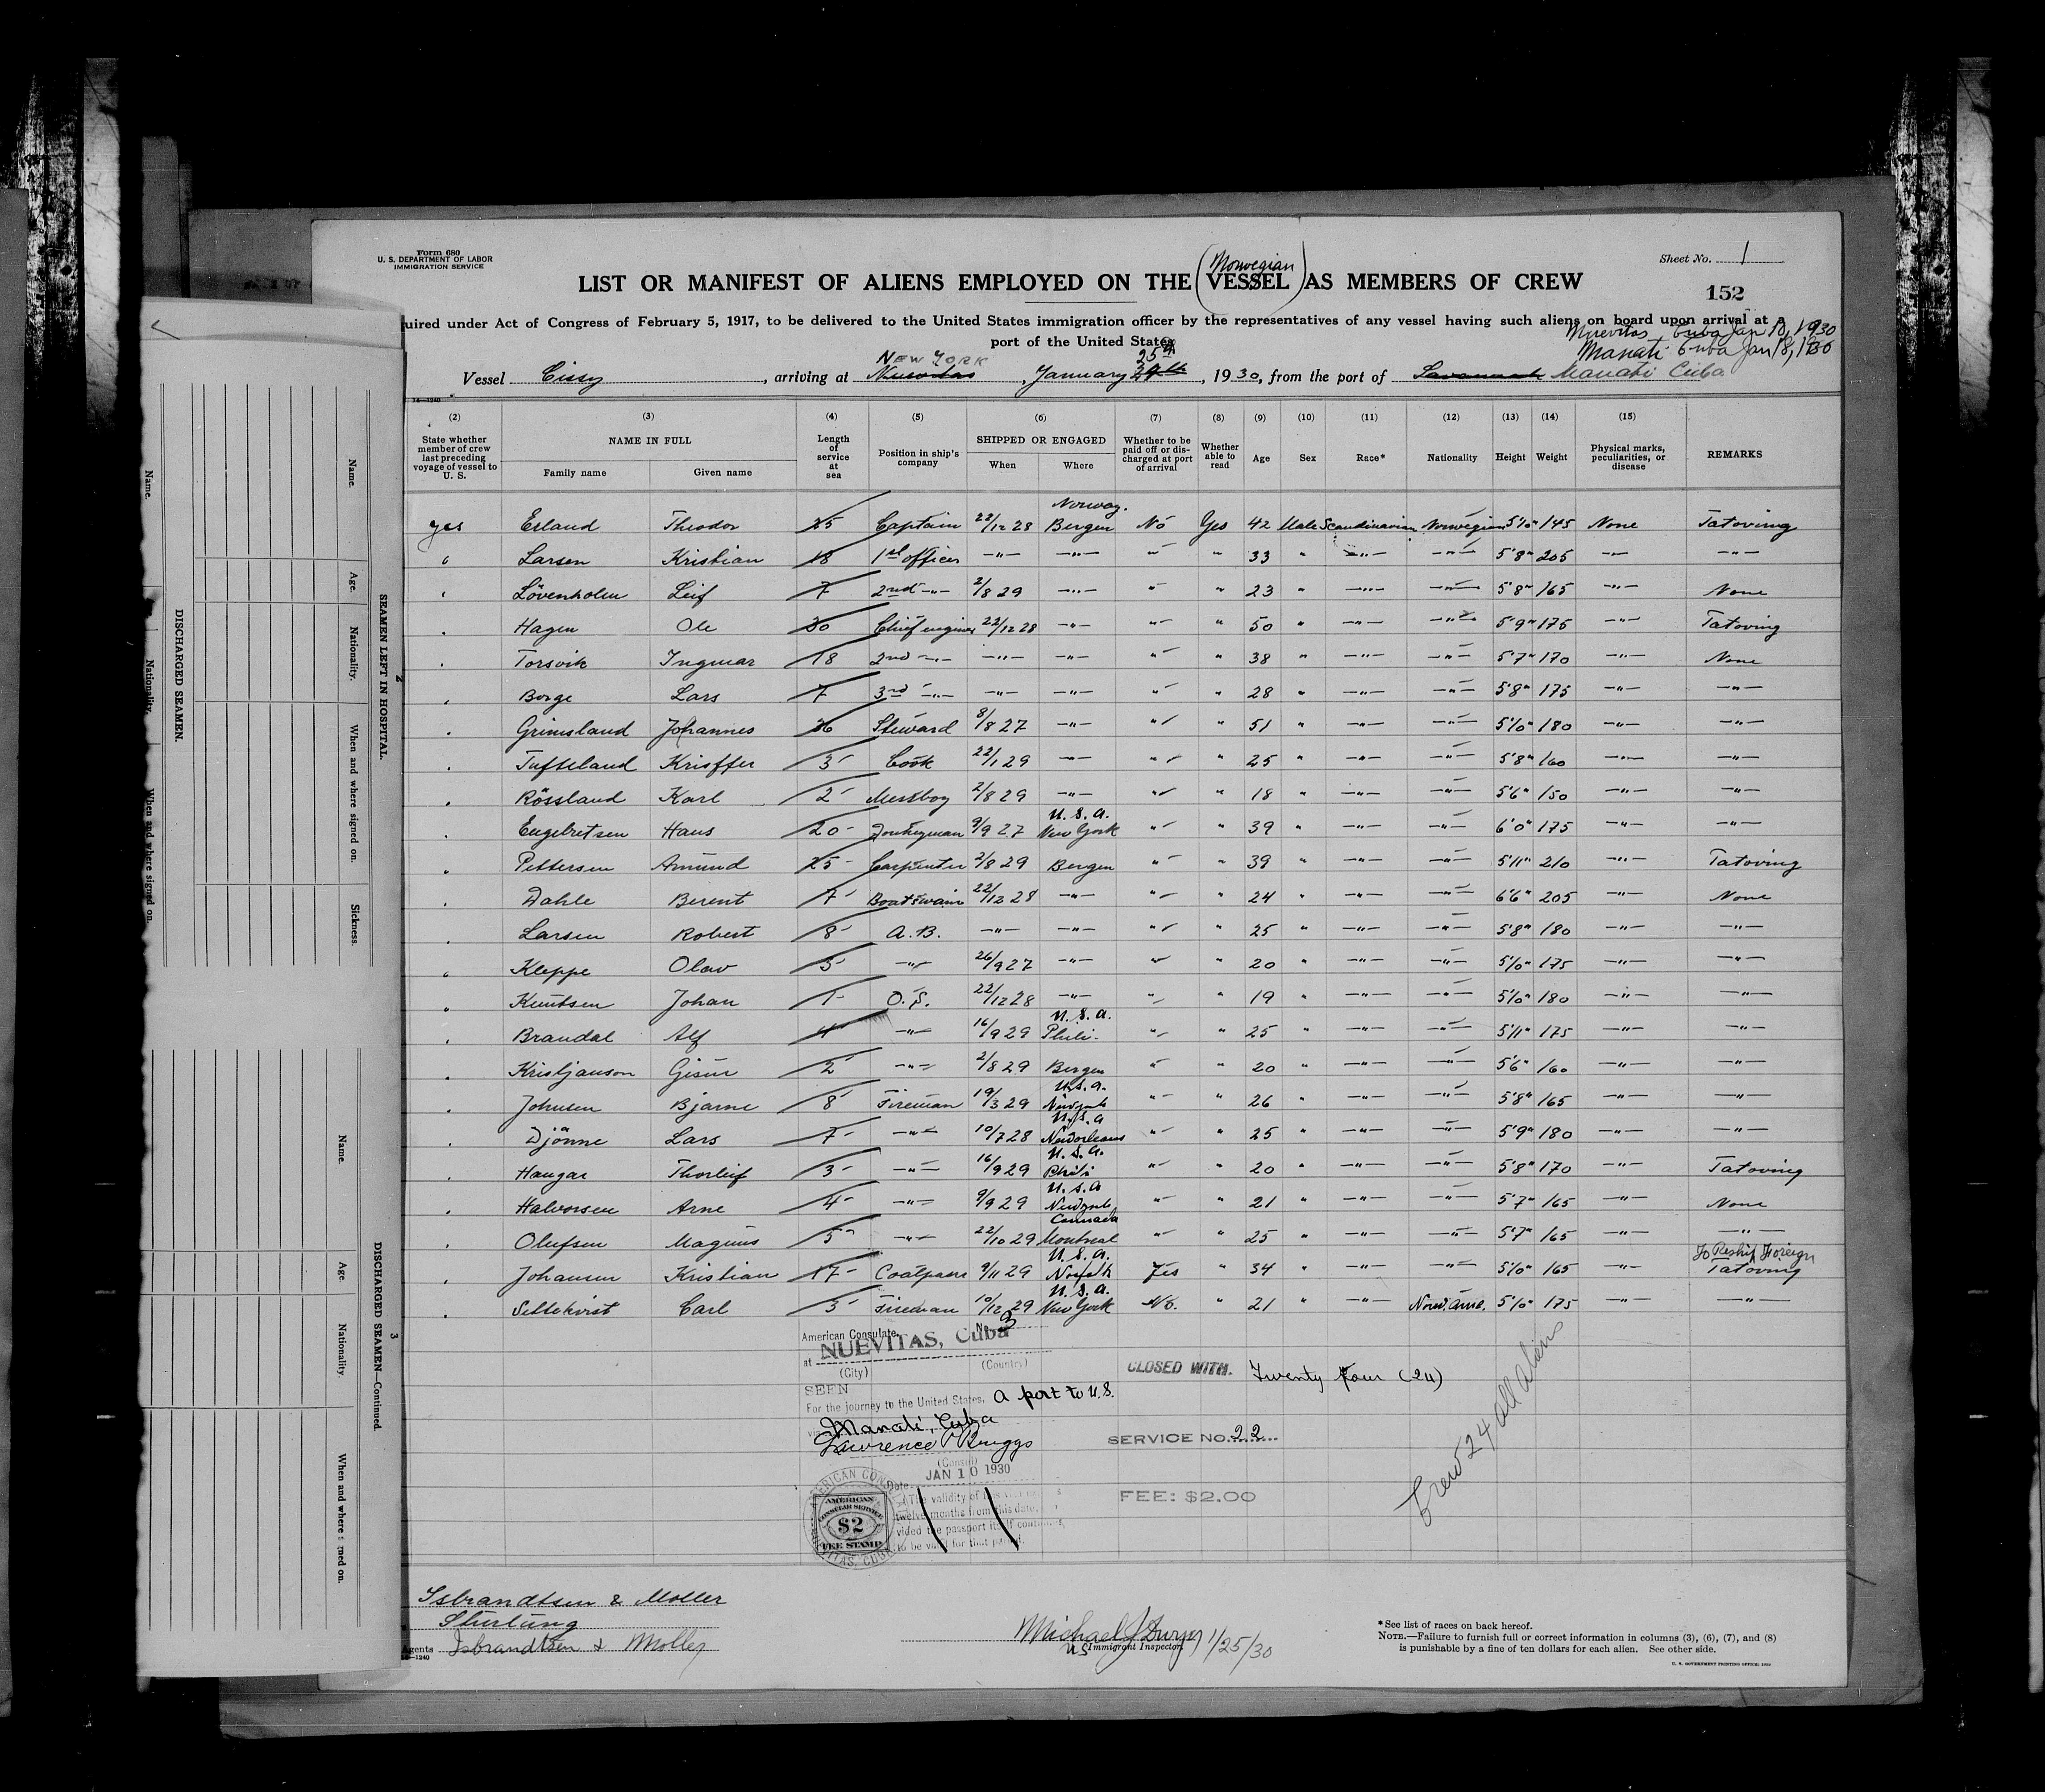 Form 680
U. S. DEPARTMENT OF LABOR
IMMIGRATION SERVICE
Sheet No. 1
Norwegian
LIST OR MANIFEST OF ALIENS EMPLOYED ON THE VESSEL AS MEMBERS OF CREW
152
uired under Act of Congress of February 5, 1917, to be delivered to the United States immigration officer by the representatives of any vessel having such aliens on board upon arrival at a
port of the United States
Nuevitas Cuba Jan 10, 1930
Manati Cuba Jan 18, 1930
NEW YORK 25th
Vessel Cissy, arriving at Nuevitas, January, 1930, from the port of Savannah Manati Cuba
(2) (3) (4) (5) (6) (7) (8) (9) (10) (11) (12) (13) (14) (15)
State whether member of crew last preceding voyage of vessel to U. S. NAME IN FULL Family name Given name Length of service at sea Position in ship's company SHIPPED OR ENGAGED When Where Whether to be paid off or discharged at port of arrival Whether able to read Age Sex Race* Nationality Height Weight Physical marks, peculiarities, or disease REMARKS
Norway.
yes Erland Theodor 25 Captain 22/12 28 Bergen No Yes 42 Male Scandinavian Norwegian 5'10" 145 None Tatoving
" Larsen Kristian 18 1st officer —"— —"— " " 33 " —"— —"— 5'8" 205 —"— —"—
" Lövenholm Leif 7 2nd —"— 2/8 29 —"— " " 23 " —"— —"— 5'8" 165 —"— None
" Hagen Ole 30 Chief engineer 22/12 28 —"— " " 50 " —"— —"— 5'9" 175 —"— Tatoving
" Torsvik Ingmar 18 2nd —"— —"— —"— " " 38 " —"— —"— 5'7" 170 —"— None
" Borge Lars 7 3rd —"— —"— —"— " " 28 " —"— —"— 5'8" 175 —"— —"—
" Grimsland Johannes 36 Steward 8/8 27 —"— " " 51 " —"— —"— 5'10" 180 —"— —"—
" Tufteland Krisffer 3 Cook 22/1 29 —"— " " 25 " —"— —"— 5'8" 160 —"— —"—
" Rössland Karl 2 Messboy 2/8 29 —"— " " 18 " —"— —"— 5'6" 150 —"— —"—
U. S. A.
" Engebretsen Hans 20 Donkeyman 9/9 27 New York " " 39 " —"— —"— 6'0" 175 —"— —"—
" Pettersen Amund 25 Carpenter 2/8 29 Bergen " " 39 " —"— —"— 5'11" 210 —"— Tatoving
" Dahle Berent 7 Boatswain 22/12 28 —"— " " 24 " —"— —"— 6'6" 205 —"— None
" Larsen Robert 8 A.B. —"— —"— " " 25 " —"— —"— 5'8" 180 —"— —"—
" Kleppe Olav 3 —"— 26/9 27 —"— " " 20 " —"— —"— 5'10" 175 —"— —"—
" Knutsen Johan 1 O.S. 22/12 28 —"— " " 19 " —"— —"— 5'10" 180 —"— —"—
U. S. A.
" Brandal Alf 4 —"— 16/9 29 Phili. " " 25 " —"— —"— 5'11" 175 —"— —"—
" Kristjanson Gisur 2 —"— 2/8 29 Bergen " " 20 " —"— —"— 5'6" 160 —"— —"—
U.S.A.
" Johnsen Bjarne 8 Fireman 19/3 29 Newyork " " 26 " —"— —"— 5'8" 165 —"— —"—
U.S.A
" Djönne Lars 7 —"— 10/7 28 Neworleans " " 25 " —"— —"— 5'9" 180 —"— —"—
U. S. A.
" Haugar Thorleif 3 —"— 16/9 29 Phili " " 20 " —"— —"— 5'8" 170 —"— Tatoving
U. S. A
" Halvorsen Arne 4 —"— 9/9 29 Newyork " " 21 " —"— —"— 5'7" 165 —"— None
Cannada
" Olufsen Magnus 5 —"— 22/10 29 Montreal " " 25 " —"— —"— 5'7" 165 —"— —"—
U. S. A. To Reship Foreign
" Johansen Kristian 17 Coalpass 9/11 29 Norfolk Yes " 34 " —"— —"— 5'10" 165 —"— Tatoving
U. S. A.
" Carl 3 Fireman 10/12 29 New York No. " 21 " —"— 5'10" 175 —"— —"—
American Consulate, No. 3
at NUEVITAS, Cuba
(City) (Country)
SEEN
For the journey to the United States, a port to U.S.
via Manati, Cuba
Lawrence P Briggs
(Consul)
Date JAN 10 1930
(The validity of this
twelve months from this date,
vided the passport itself continues
to be valid for that period.
AMERICAN CONSULAR SERVICE
$2
FEE STAMP
NUEVITAS, CUBA
CLOSED WITH. Twenty Four (24)
SERVICE NO. 22
FEE: $2.00
Crew 24 all aliens
Isbrandtsen & Moller
Agents Isbrandtsen & Moller
14—1240
Michael J Dwyer 1/25/30
US Immigrant Inspector.
* See list of races on back hereof.
NOTE.—Failure to furnish full or correct information in columns (3), (6), (7), and (8)
is punishable by a fine of ten dollars for each alien. See other side.
U. S. GOVERNMENT PRINTING OFFICE: 1929
SEAMEN LEFT IN HOSPITAL.
Name. Age. Nationality. When and where signed on. Sickness.
2
DISCHARGED SEAMEN.
Name. Nationality. When and where signed on.
DISCHARGED SEAMEN—Continued.
Name. Age. Nationality. When and where signed on.
3